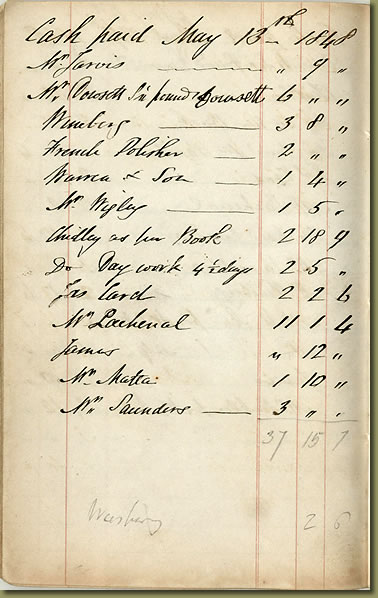 Cash paid May 13th 1848
Mr Jarvis " 9 "
Mr Dowsett Dowsett 6 " "
Wineberg 3 8 "
French Polisher 2 " "
Warren & Son 1 4 "
Mr Wigley 1 5 "
Chidley as per Book 2 18 9
Do Day work 4½ days 2 5 "
Jas Card 2 2 6
Mr Lachenal 11 1 4
James " 12 "
Mr Matta 1 10 "
Mr Saunders 3 " "
37 15 7
2 6